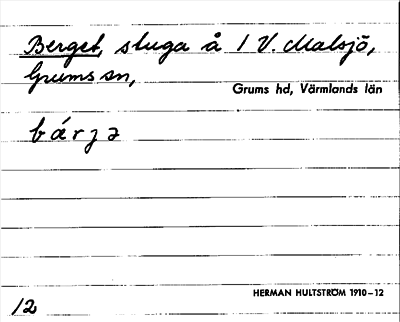 Berget, stuga å 1 V. Malsjö,
Grums sn,
Grums hd, Värmlands län
bárjə
HERMAN HULTSTRÖM 1910–12
12